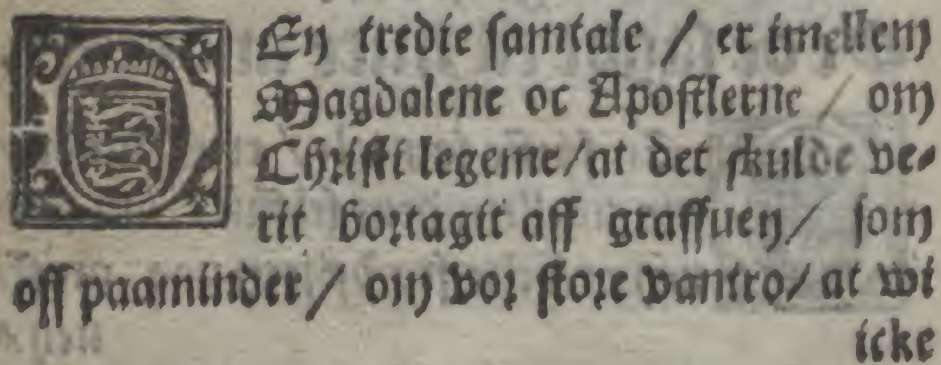 DEn tredie samtale / er imellem
Magdalene oc Apostlerne / om
Christi legeme/at det skulde ve⸗
rit bortagit aff graffuen/ som
oss paaminder / om vor store vantro/ at wi
icke